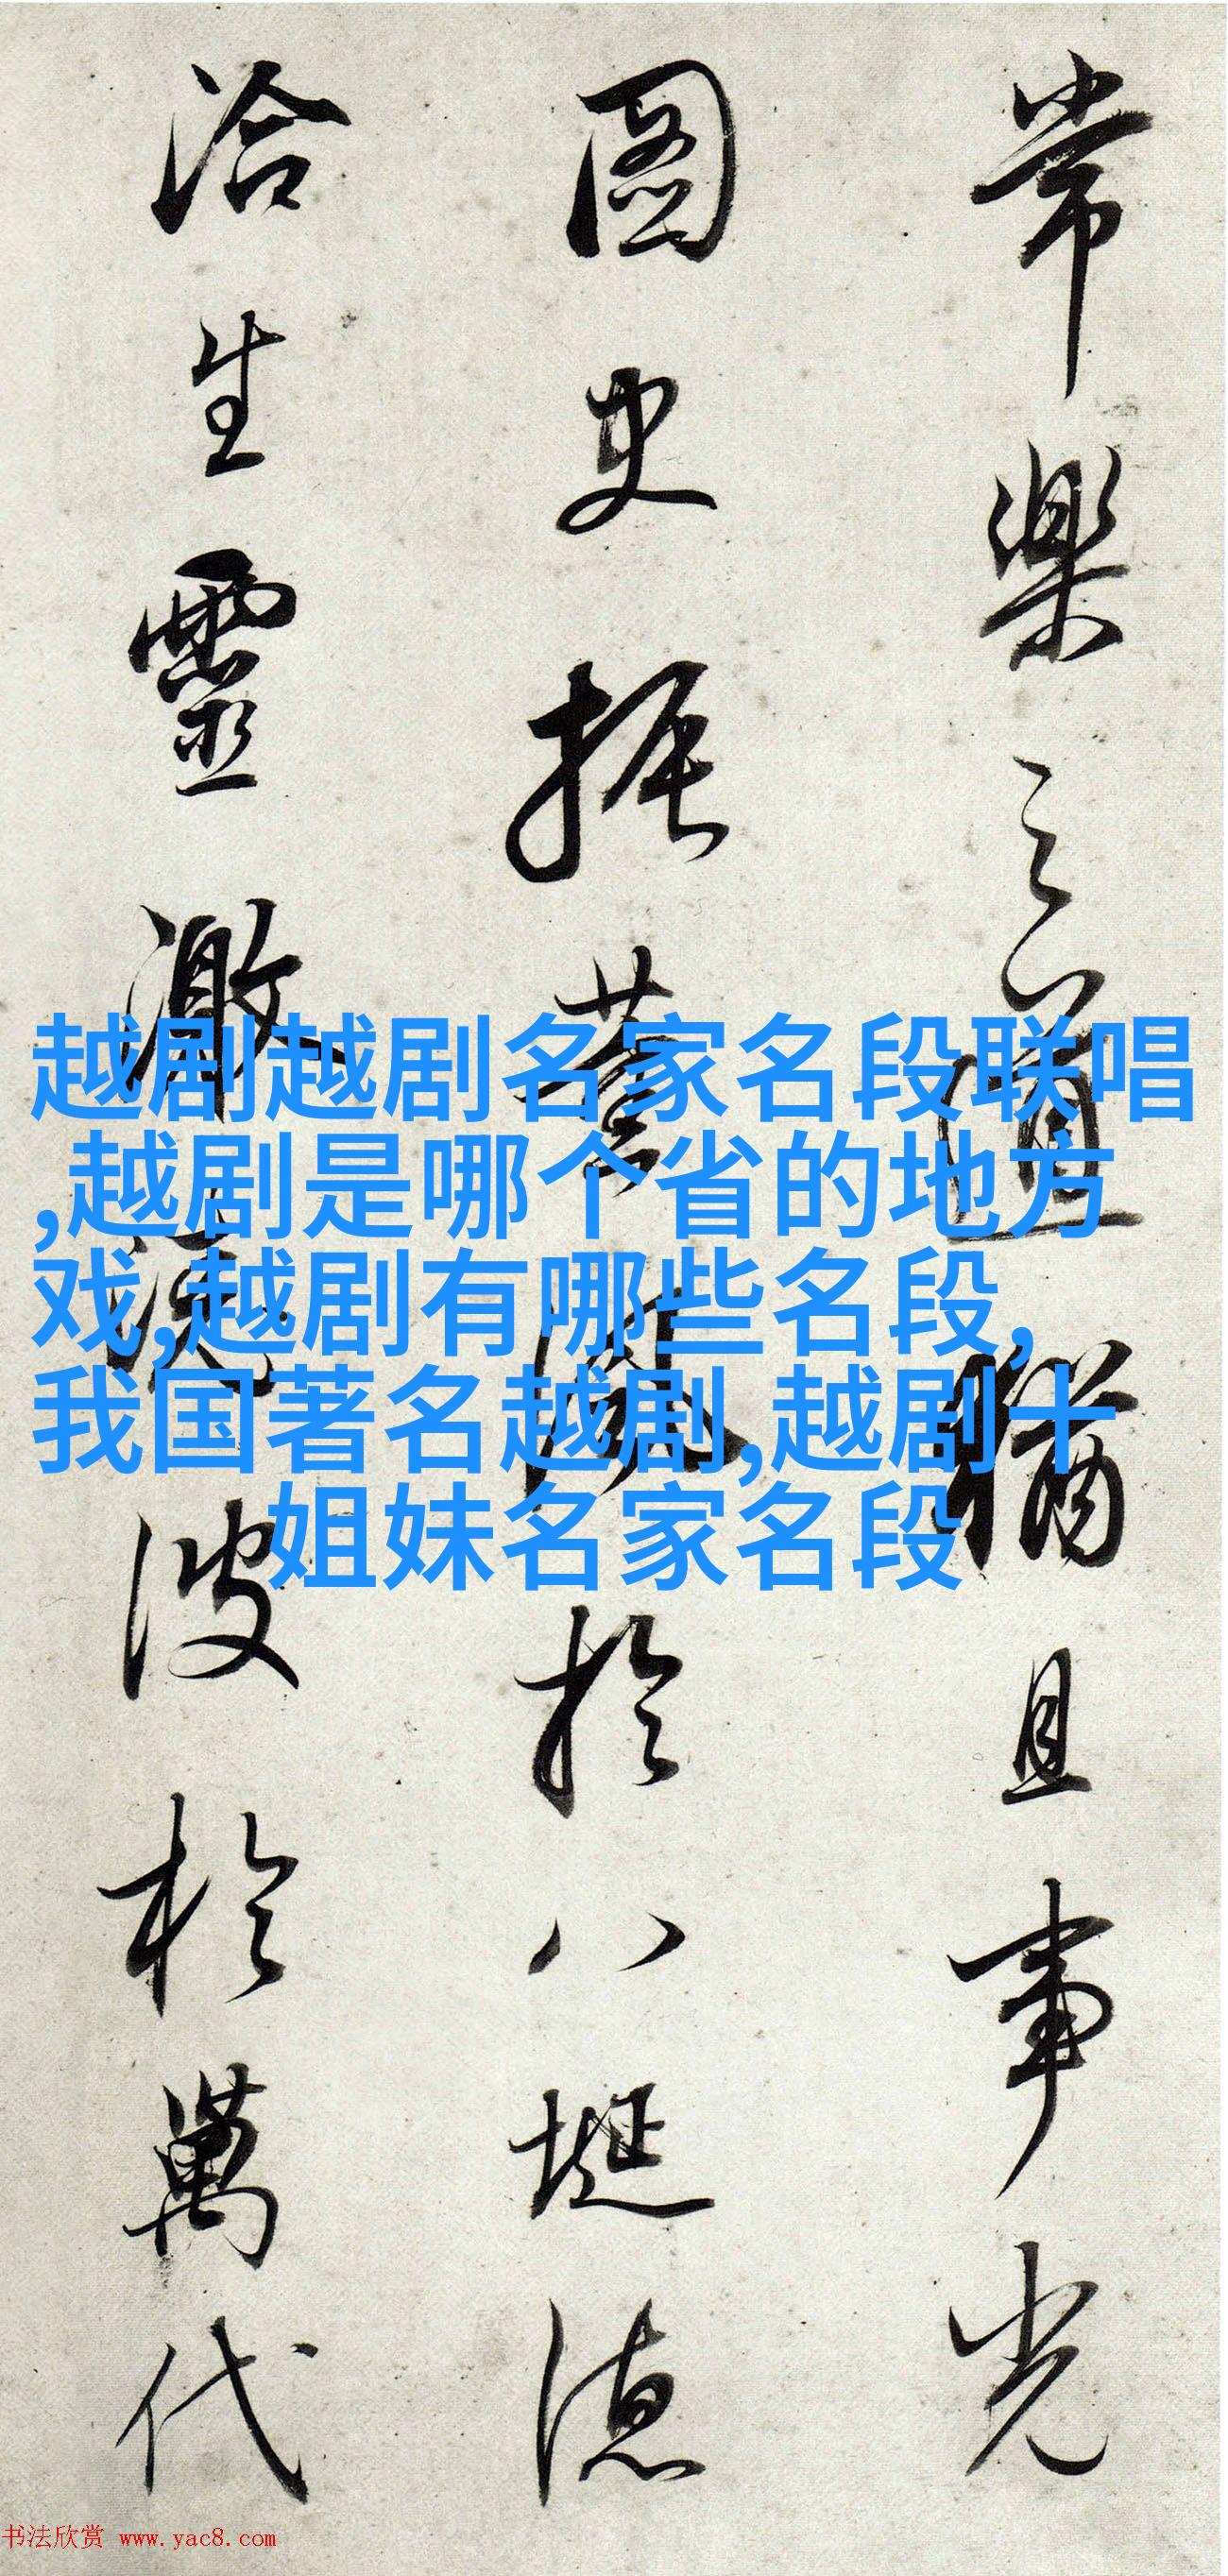 常樂之道猶且事光
圖史振風於八埏德
洽生靈激流波於萬代
越剧越剧名家名段联唱
,越剧是哪个省的地方
戏,越剧有哪些名段,
我国著名越剧,越剧十
姐妹名家名段
书法欣赏 www.yac8.com